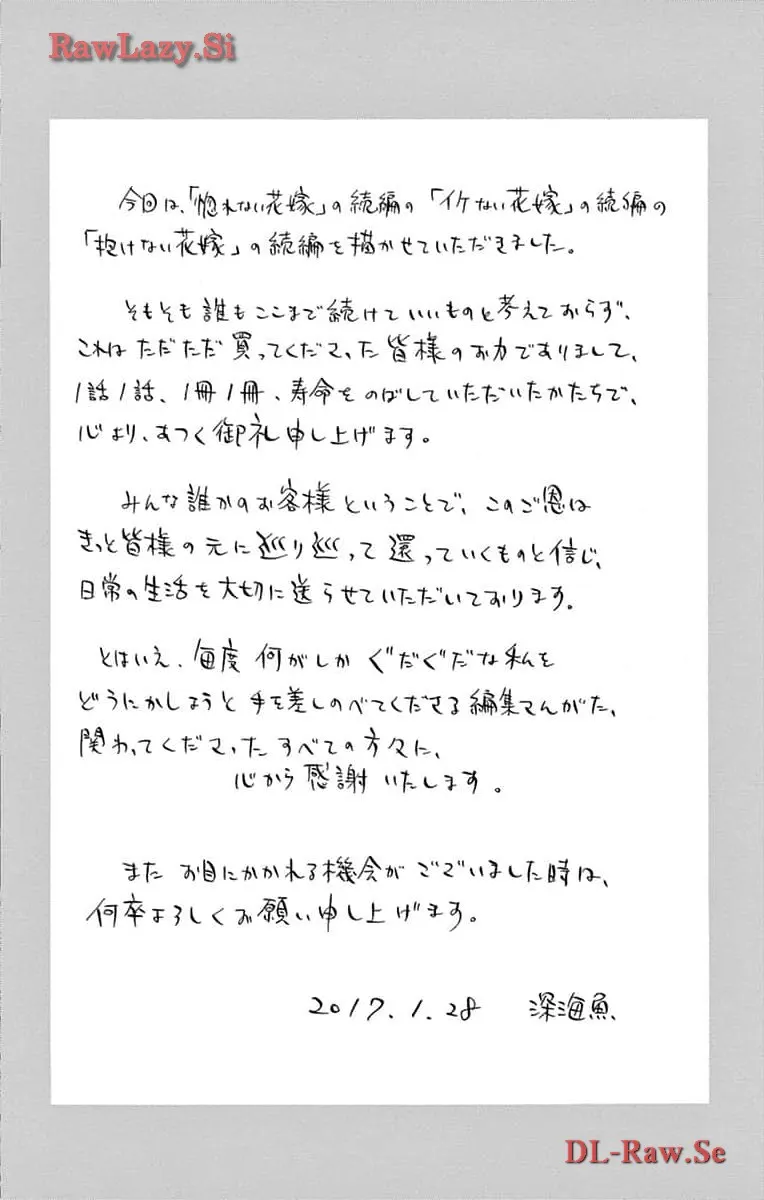 RawLazy.Si
今回は、「惚れない花嫁」の続編の「イケない花嫁」の続編の
「抱けない花嫁」の続編を描かせていただきました。
そもそも誰もここまで続けていいものと考えておらず、
これはただただ買ってくださった皆様のお力でありまして、
1話1話、1冊1冊、寿命をのばしていただいたかたちで、
心より、あつく御礼申し上げます。
みんな誰かのお客様ということで、このご恩は
きっと皆様の元に巡り巡って還っていくものと信じ、
日常の生活を大切に送らせていただいております。
とはいえ、毎度何がしかぐだぐだな私を
どうにかしようと手を差しのべてくださる編集さんがた、
関わってくださったすべての方々に、
心から感謝いたします。
またお目にかかれる機会がございました時は、
何卒よろしくお願い申し上げます。
2017.1.28 深海魚
DL-Raw.Se